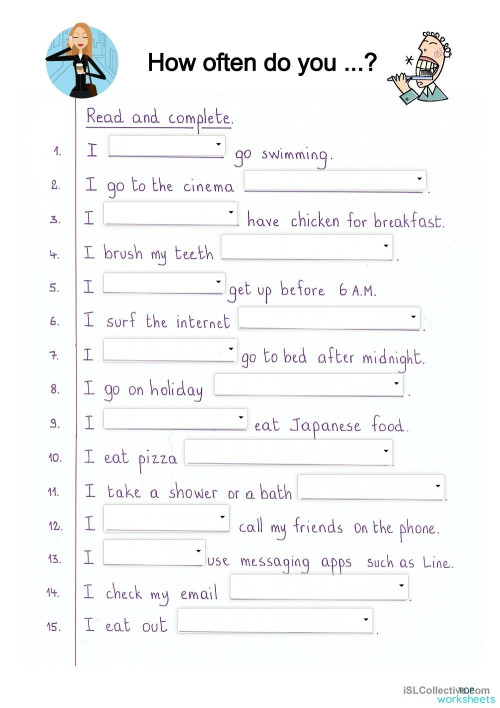 How often do you ...?
Read and complete.
1. I go swimming.
2. I go to the cinema .
3. I have chicken for breakfast.
4. I brush my teeth .
5. I get up before 6 A.M.
6. I surf the internet .
7. I go to bed after midnight.
8. I go on holiday .
9. I eat Japanese food.
10. I eat pizza .
11. I take a shower or a bath .
12. I call my friends on the phone.
13. I use messaging apps such as Line.
14. I check my email .
15. I eat out .
iSLCollective.com
TOP
worksheets